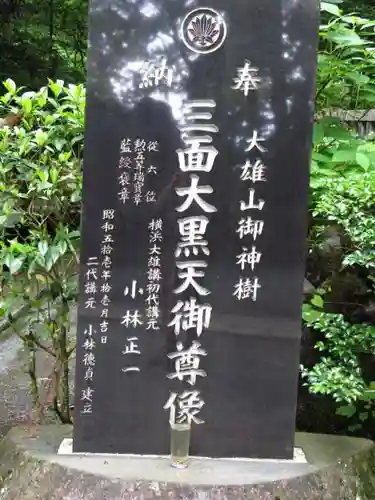 奉納
大雄山御神樹
三面大黒天御尊像
従六位
勲五等瑞宝章
藍綬褒章
横浜大雄講初代講元
小林正一
昭和五拾壱年拾壱月吉日
二代講元 小林徳貞 建立